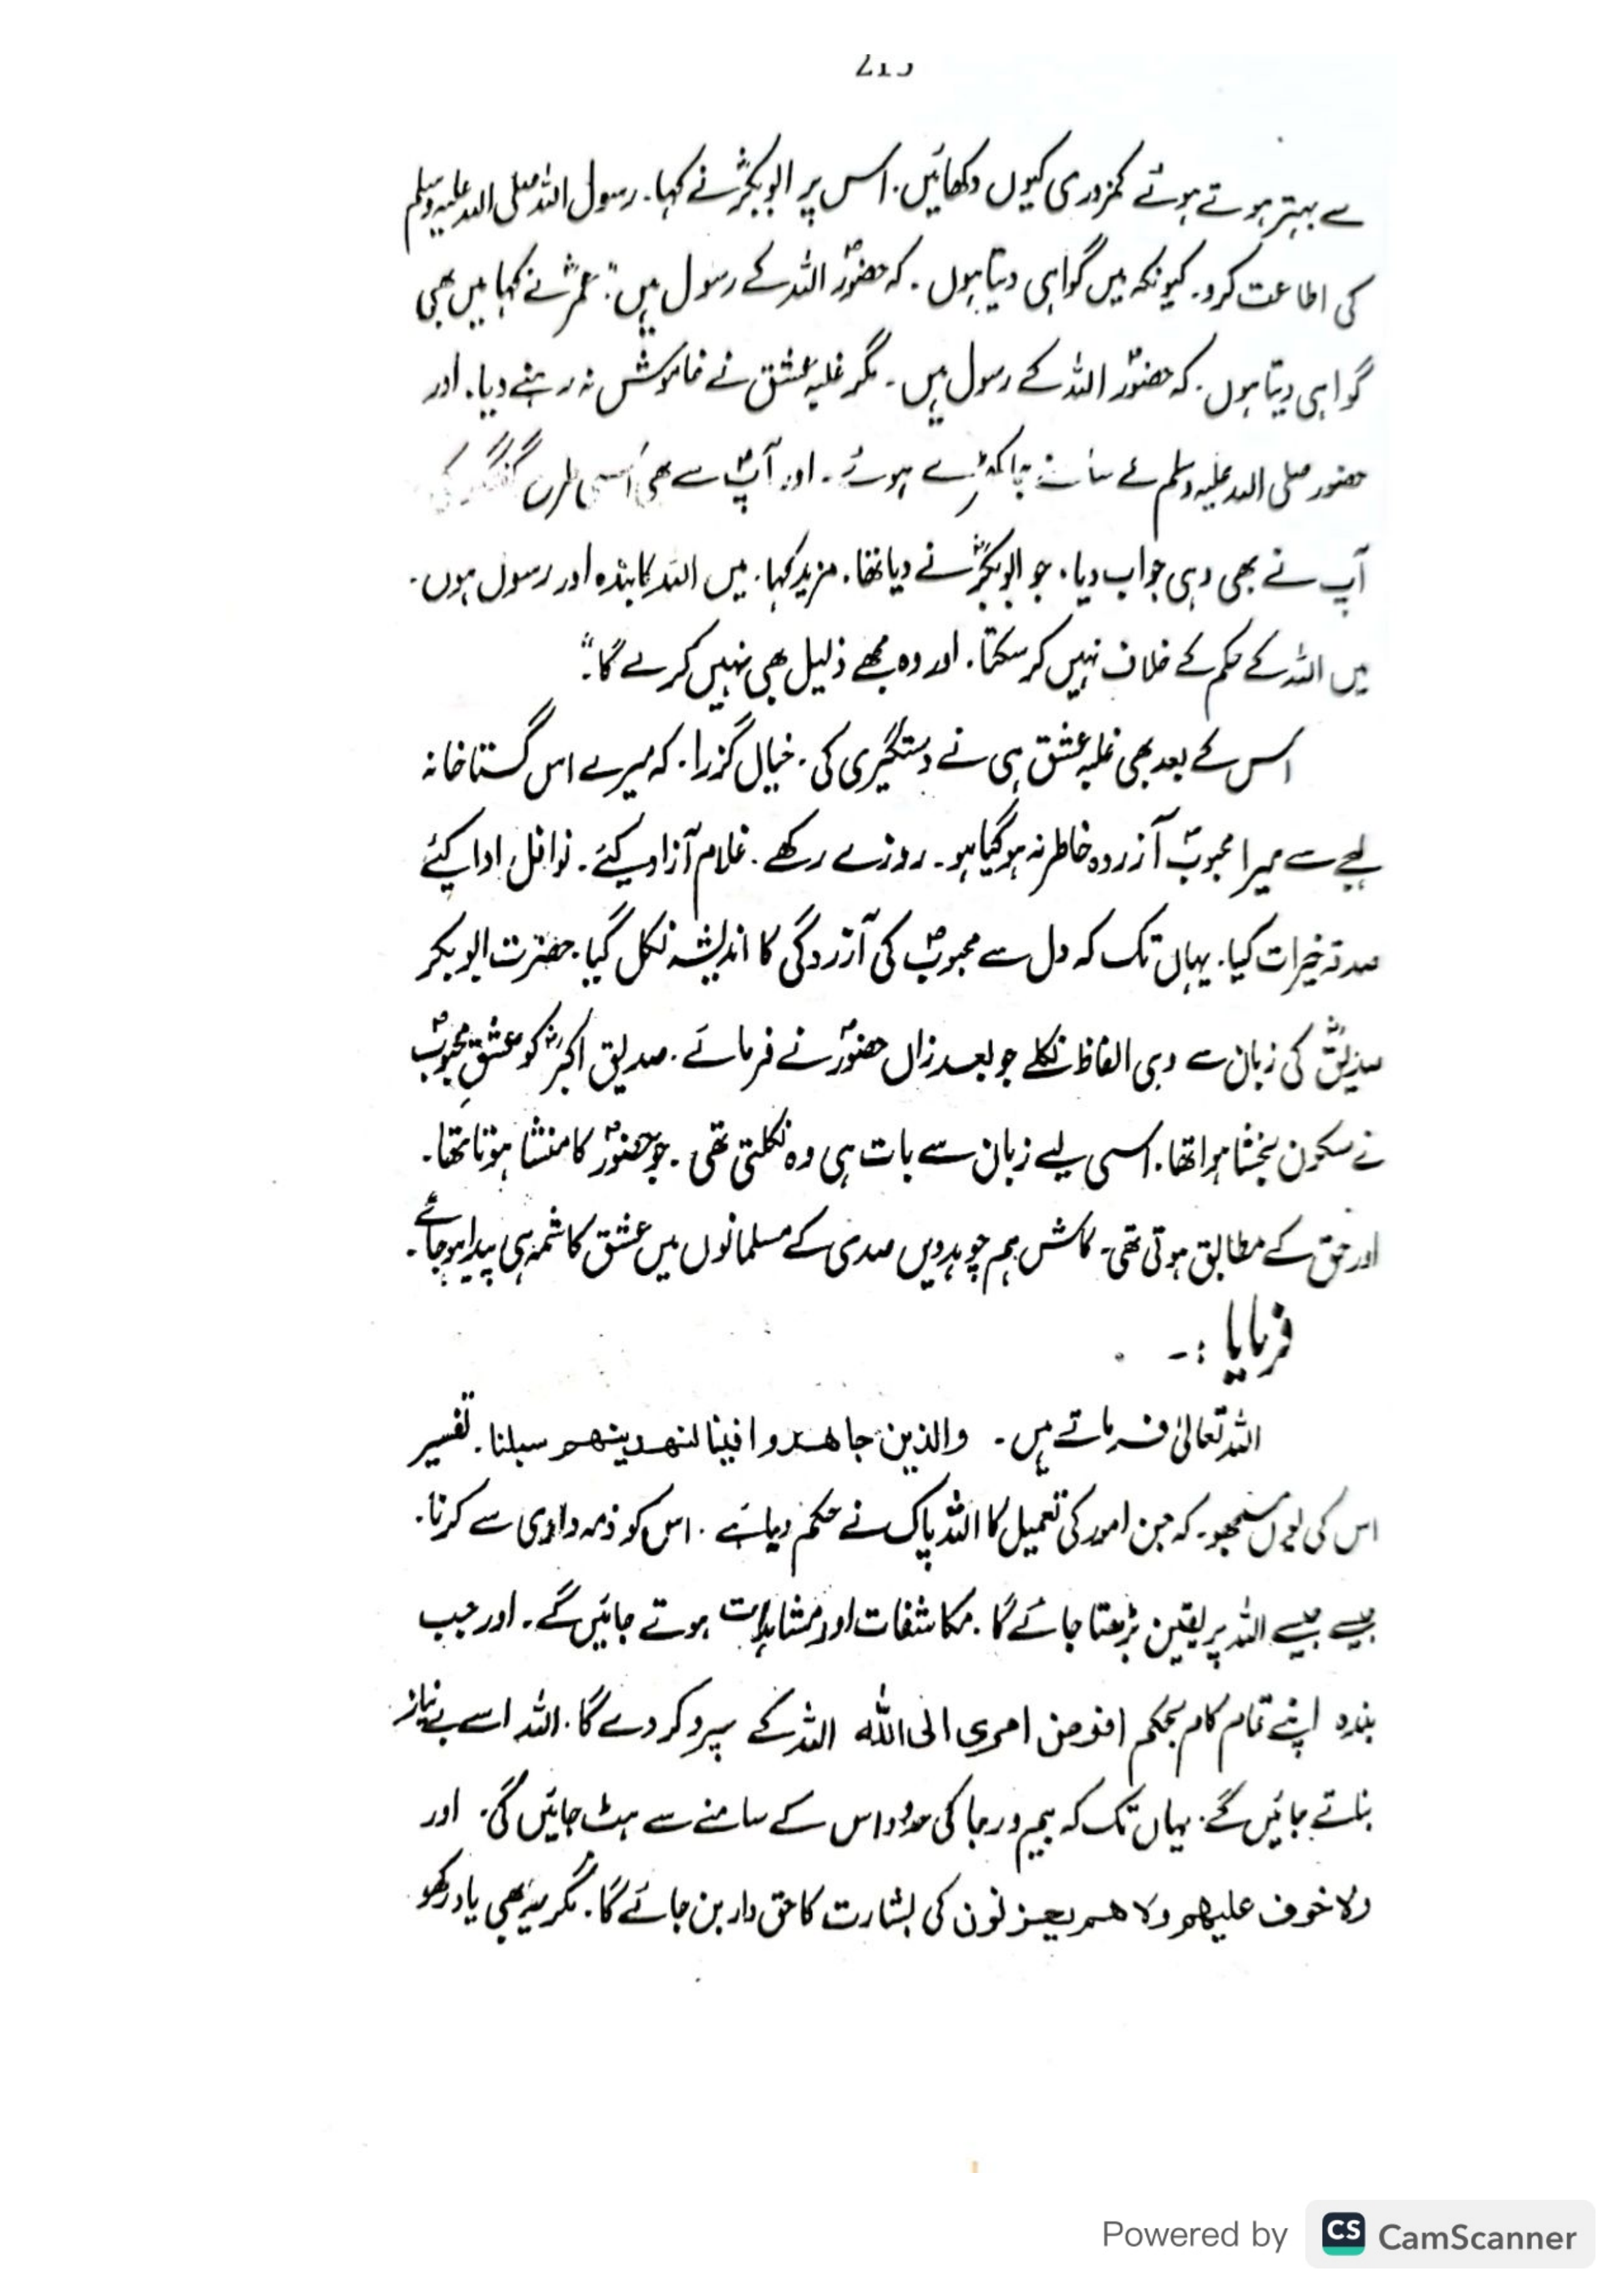 سے بہتر ہوتے ہوئے کمزوری کیوں دکھائیں. اس پر ابوبکرؓ نے کہا. رسول اللہ صلی اللہ علیہ وسلم
کی اطاعت کرو. کیونکہ میں گواہی دیتا ہوں. کہ حضورؐ اللہ کے رسول ہیں". عمرؓ نے کہا میں بھی
گواہی دیتا ہوں. کہ حضورؐ اللہ کے رسول ہیں. مگر غلبہ عشق نے خاموش نہ رہنے دیا. اور
حضور صلی اللہ علیہ وسلم کے سامنے جا کھڑے ہوئے. اور آپؐ سے بھی اسی طرح گفتگو کی
آپ نے بھی وہی جواب دیا، جو ابوبکرؓ نے دیا تھا. مزید کہا. میں اللہ کا بندہ اور رسول ہوں.
میں اللہ کے حکم کے خلاف نہیں کر سکتا. اور وہ مجھے ذلیل بھی نہیں کرے گا".
اس کے بعد بھی غلبہ عشق ہی نے دستگیری کی. خیال گزرا. کہ میرے اس گستاخانہ
لہجے سے میرا محبوبؐ آزردہ خاطر نہ ہو گیا ہو. روزے رکھے. غلام آزاد کیئے. نوافل ادا کیئے
صدقہ خیرات کیا. یہاں تک کہ دل سے محبوبؐ کی آزردگی کا اندیشہ نکل گیا. حضرت ابوبکر
صدیقؓ کی زبان سے وہی الفاظ نکلے جو بعد ازاں حضورؐ نے فرمائے. صدیق اکبرؓ کو عشقِ محبوبؐ
نے سکون بخشا ہوا تھا. اسی لیے زبان سے بات ہی وہ نکلتی تھی. جو حضورؐ کا منشا ہوتا تھا.
اور حق کے مطابق ہوتی تھی. کاش ہم چوہدویں صدی کے مسلمانوں میں عشق کا شمہ ہی پیدا ہو جائے.
فرمایا :-
اللہ تعالیٰ فرماتے ہیں. والذین جاھدوا فینا لنھدینھم سبلنا. تفسیر
اس کی یوں سمجھو. کہ جن امور کی تعمیل کا اللہ پاک نے حکم دیا ہے. اس کو ذمہ داری سے کرنا.
جیسے جیسے اللہ پر یقین بڑھتا جائے گا. مکاشفات اور مشاہدات ہوتے جائیں گے. اور جب
بندہ اپنے تمام کام بحکم افوض امری الی اللہ اللہ کے سپرد کر دے گا. اللہ اسے بے نیاز
بناتے جائیں گے. یہاں تک کہ بیم و رجا کی حدود اس کے سامنے سے ہٹ جائیں گی. اور
ولا خوف علیھم ولا ھم یحزنون کی بشارت کا حق دار بن جائے گا. مگر یہ بھی یاد رکھو
Powered by CS CamScanner